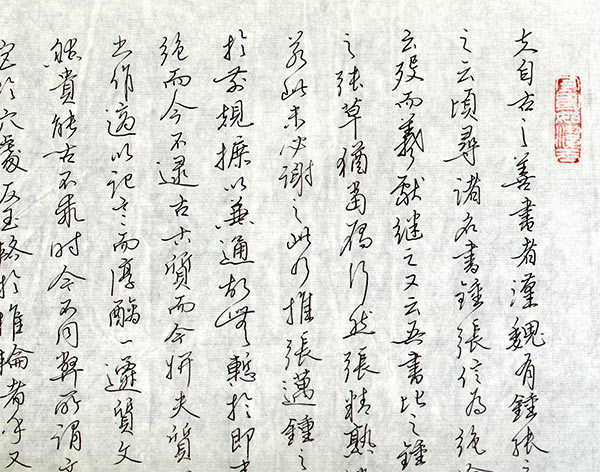 夫自古之善書者漢魏有鍾張之
之云頃尋諸名書鍾張信為絕
云歿而羲獻繼之又云吾書比之鍾
之張草猶當雁行然張精熟
若此未必謝之此乃推張邁鍾之
於前規摭以兼通故無慙於即事
絕而今不逮古古質而今妍夫質
之作適以記言而淳醨一遷質文
然貴能古不乖時今不同弊所謂文
宮於穴處反玉輅於椎輪者乎又